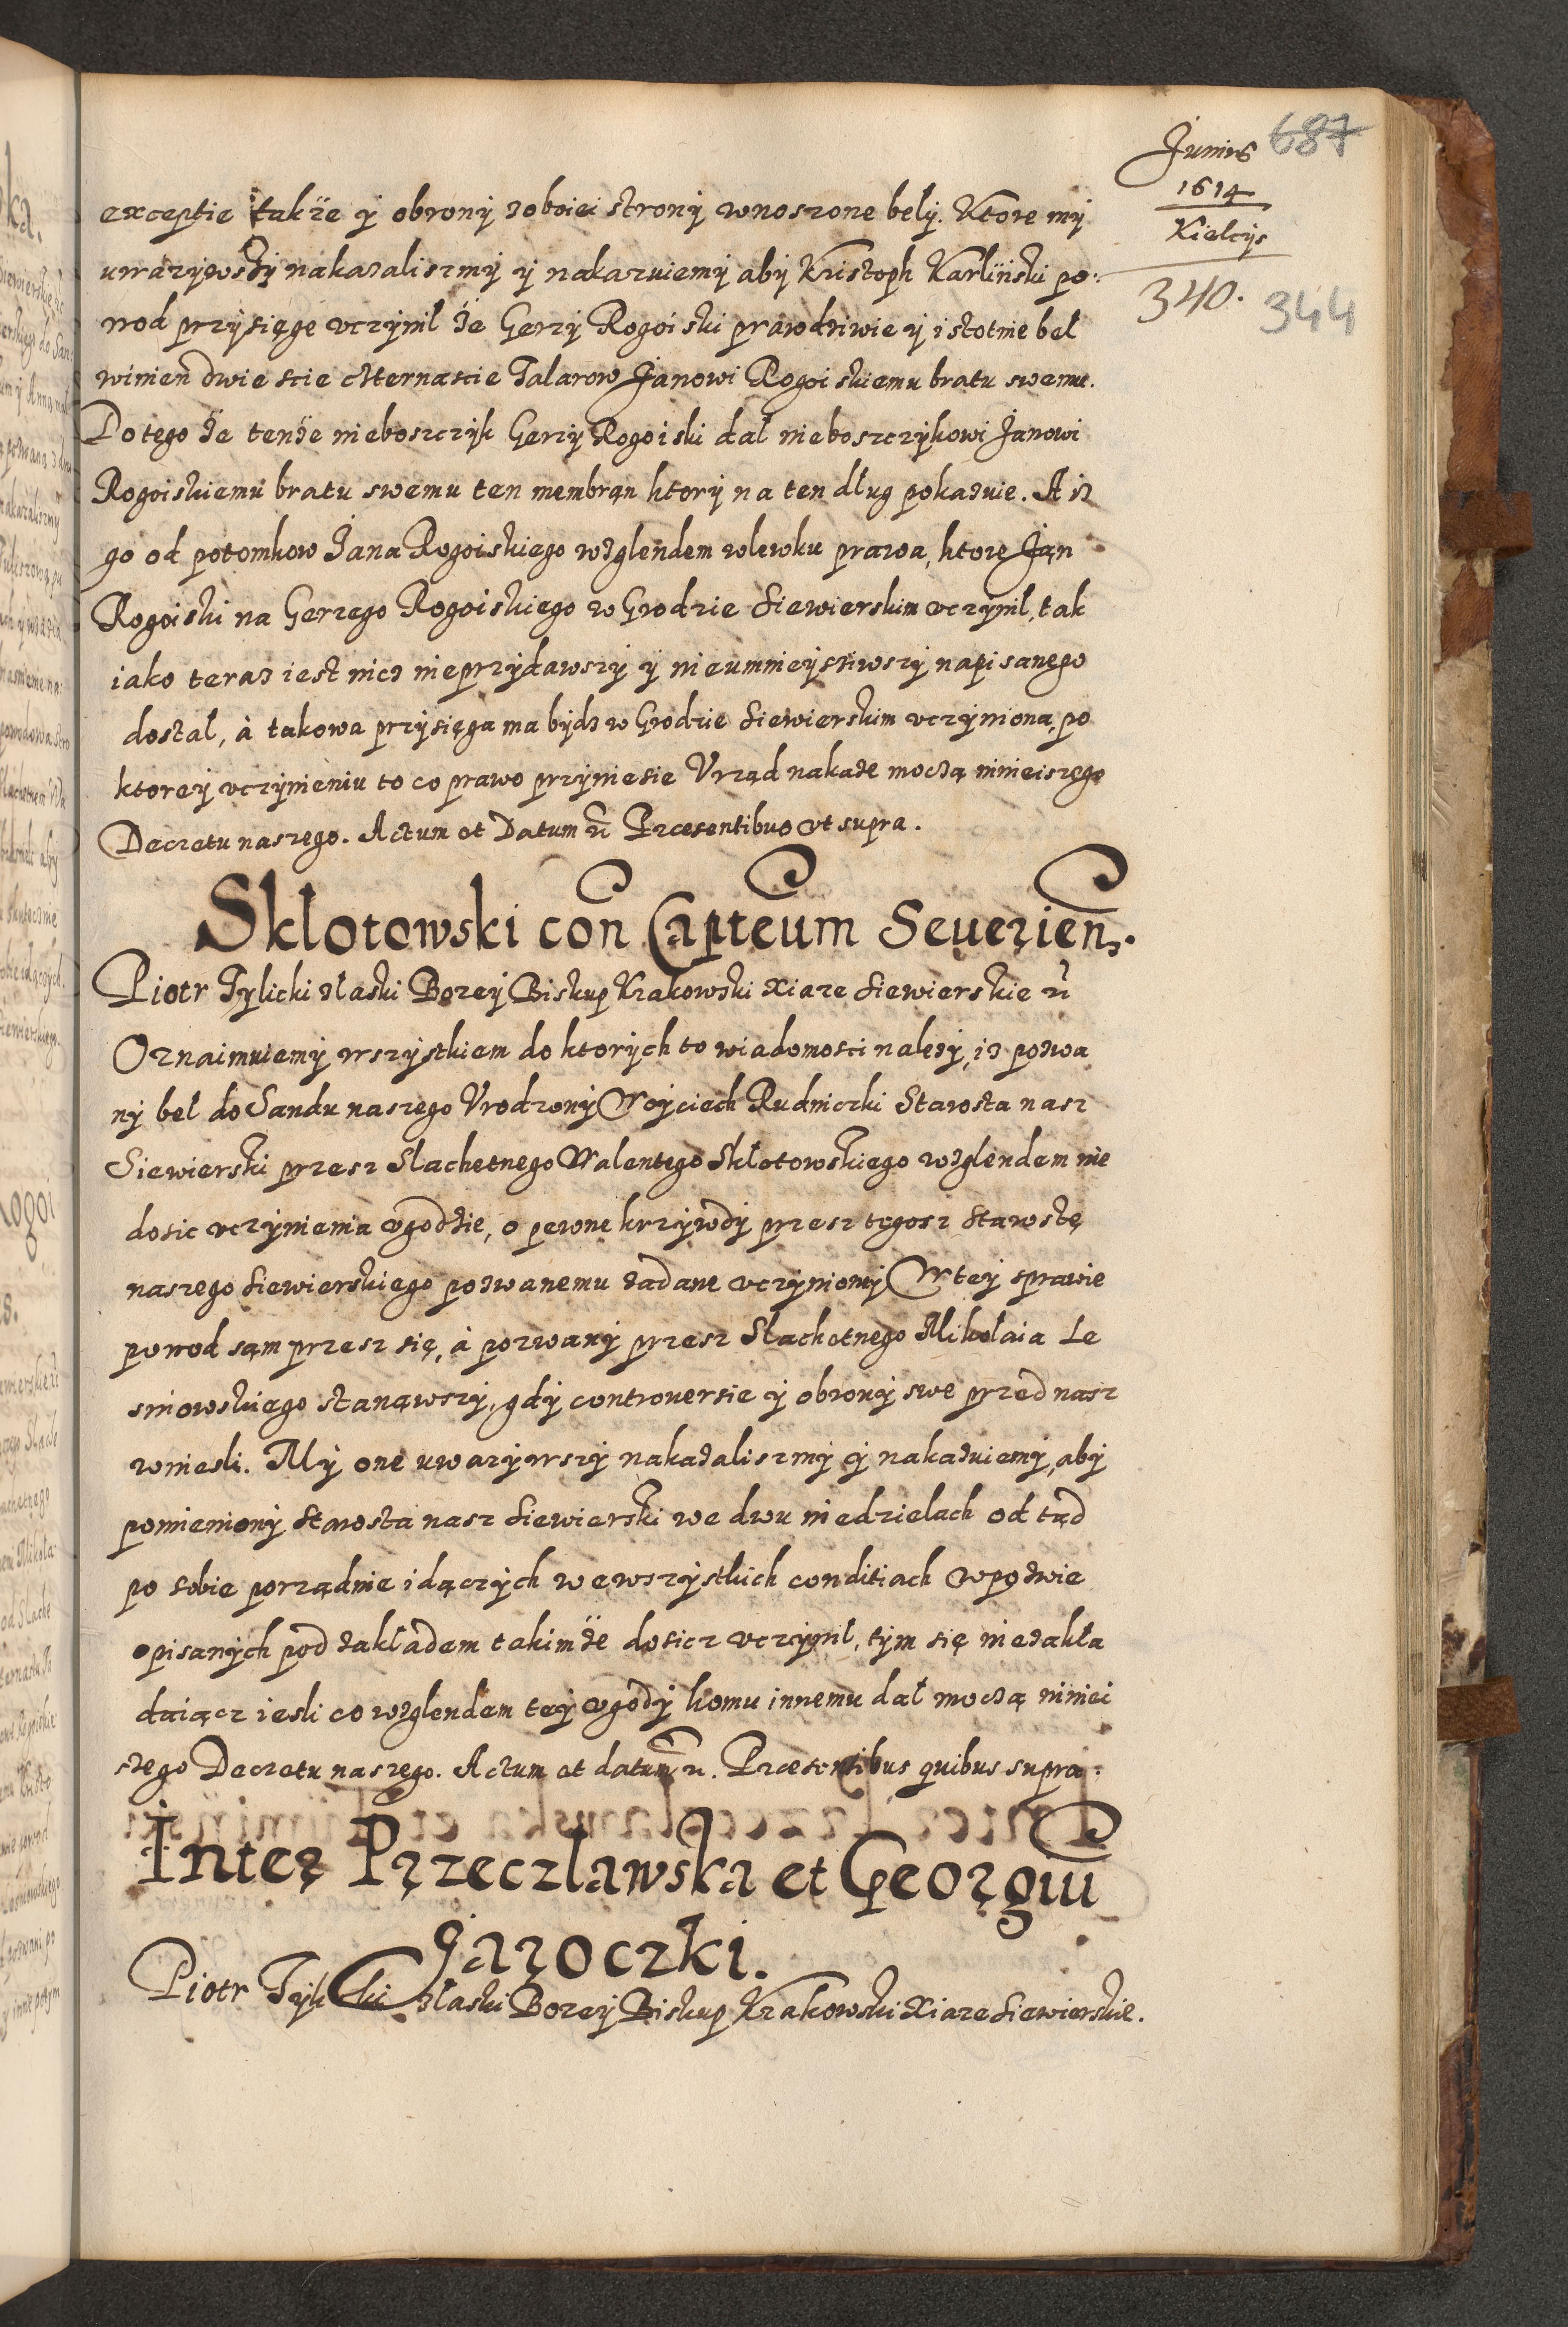 Junius 687
1614
Kielcÿs
340. 344
exceptie takze ÿ obronÿ z oboiei stronÿ wnoszone belÿ. Ktore mÿ
uwazÿwszÿ nakazaliszmÿ ÿ nakazuiemÿ abÿ Kristoph Karliński po:
wod przÿsięgę vczÿnil ze Gerzÿ Rogoiski prawdziwie ÿ istotnie bel
winien dwie scie czternascie Talarow Janowi Rogoiskiemu bratu swemu.
Do tego ze tenze nieboszczÿk Gerzÿ Rogoiski dal nieboszczÿkowi Janowi
Rogoiskiemu bratu swemu ten membran ktorÿ na ten dług pokazuie. A iz
go od potomkow Jana Rogoiskiego wzglendem wlewku prawa, ktore Jan
Rogoiski na Gerzego Rogoiskiego w Grodzie Siewierskim vczÿnil, tak
iako teraz iest nicz nieprzÿdawszÿ ÿ nieumnieÿsziwszÿ napisanego
dostal, à takowa przÿsięga ma bÿdz w Grodzie Siewierskim vczÿniona, po
ktoreÿ vczÿnieniu to co prawo przÿniesie Vrząd nakaze moczą ninieiszego
Decretu naszego. Actum et Datum ũ Præsentibus vt supra.
Sklotowski con Capteum Seuerien.
Piotr Tÿlicki złaski Bozeÿ Biskup Krakowski Xiaze Siewierskie ũ
Oznaimuiemÿ wszÿstkiem do ktorÿch to wiadomosci nalezÿ, iz pozwa
nÿ bel do Sandu naszego Vrodzonÿ Woÿciech Rudniczki Starosta nasz
Siewierski przesz Slachetnego Walentego Skłotowskiego wzglendem nie
dosic vczÿnienia vgodzie, o pewne krzÿwdÿ przesz tegosz Starostę
naszego Siewierskiego pozwanemu zadane vczÿnionÿ W teÿ sprawie
powod sam przesz się, à pozwanÿ przesz Slachetnego Mikołaia Le
sniowskiego stanąwszÿ, gdÿ controuersie ÿ obronÿ swe przed nasz
wniesli. Mÿ one uwazÿwszÿ nakazaliszmÿ ÿ nakazuiemÿ, abÿ
pomienionÿ Starosta nasz Siewierski we dwu niedzielach od tąd
po sobie porządnie idączÿch we wszÿstkich conditiach w pozwie
opisanÿch pod zakładem takimze dosicz vczÿnil, tÿm się niezakła
daiącz iesli co wzglendem teÿ vgodÿ komu innemu dał moczą niniei
szego Decretu naszego. Actum et datum ũ. Præsentibus quibus supra.
Inter Przeczławska et Georgiũ
Jaroczki.
Piotr Tÿlicki złaski Bozeÿ Biskup Krakowski Xiaze Siewierskie.